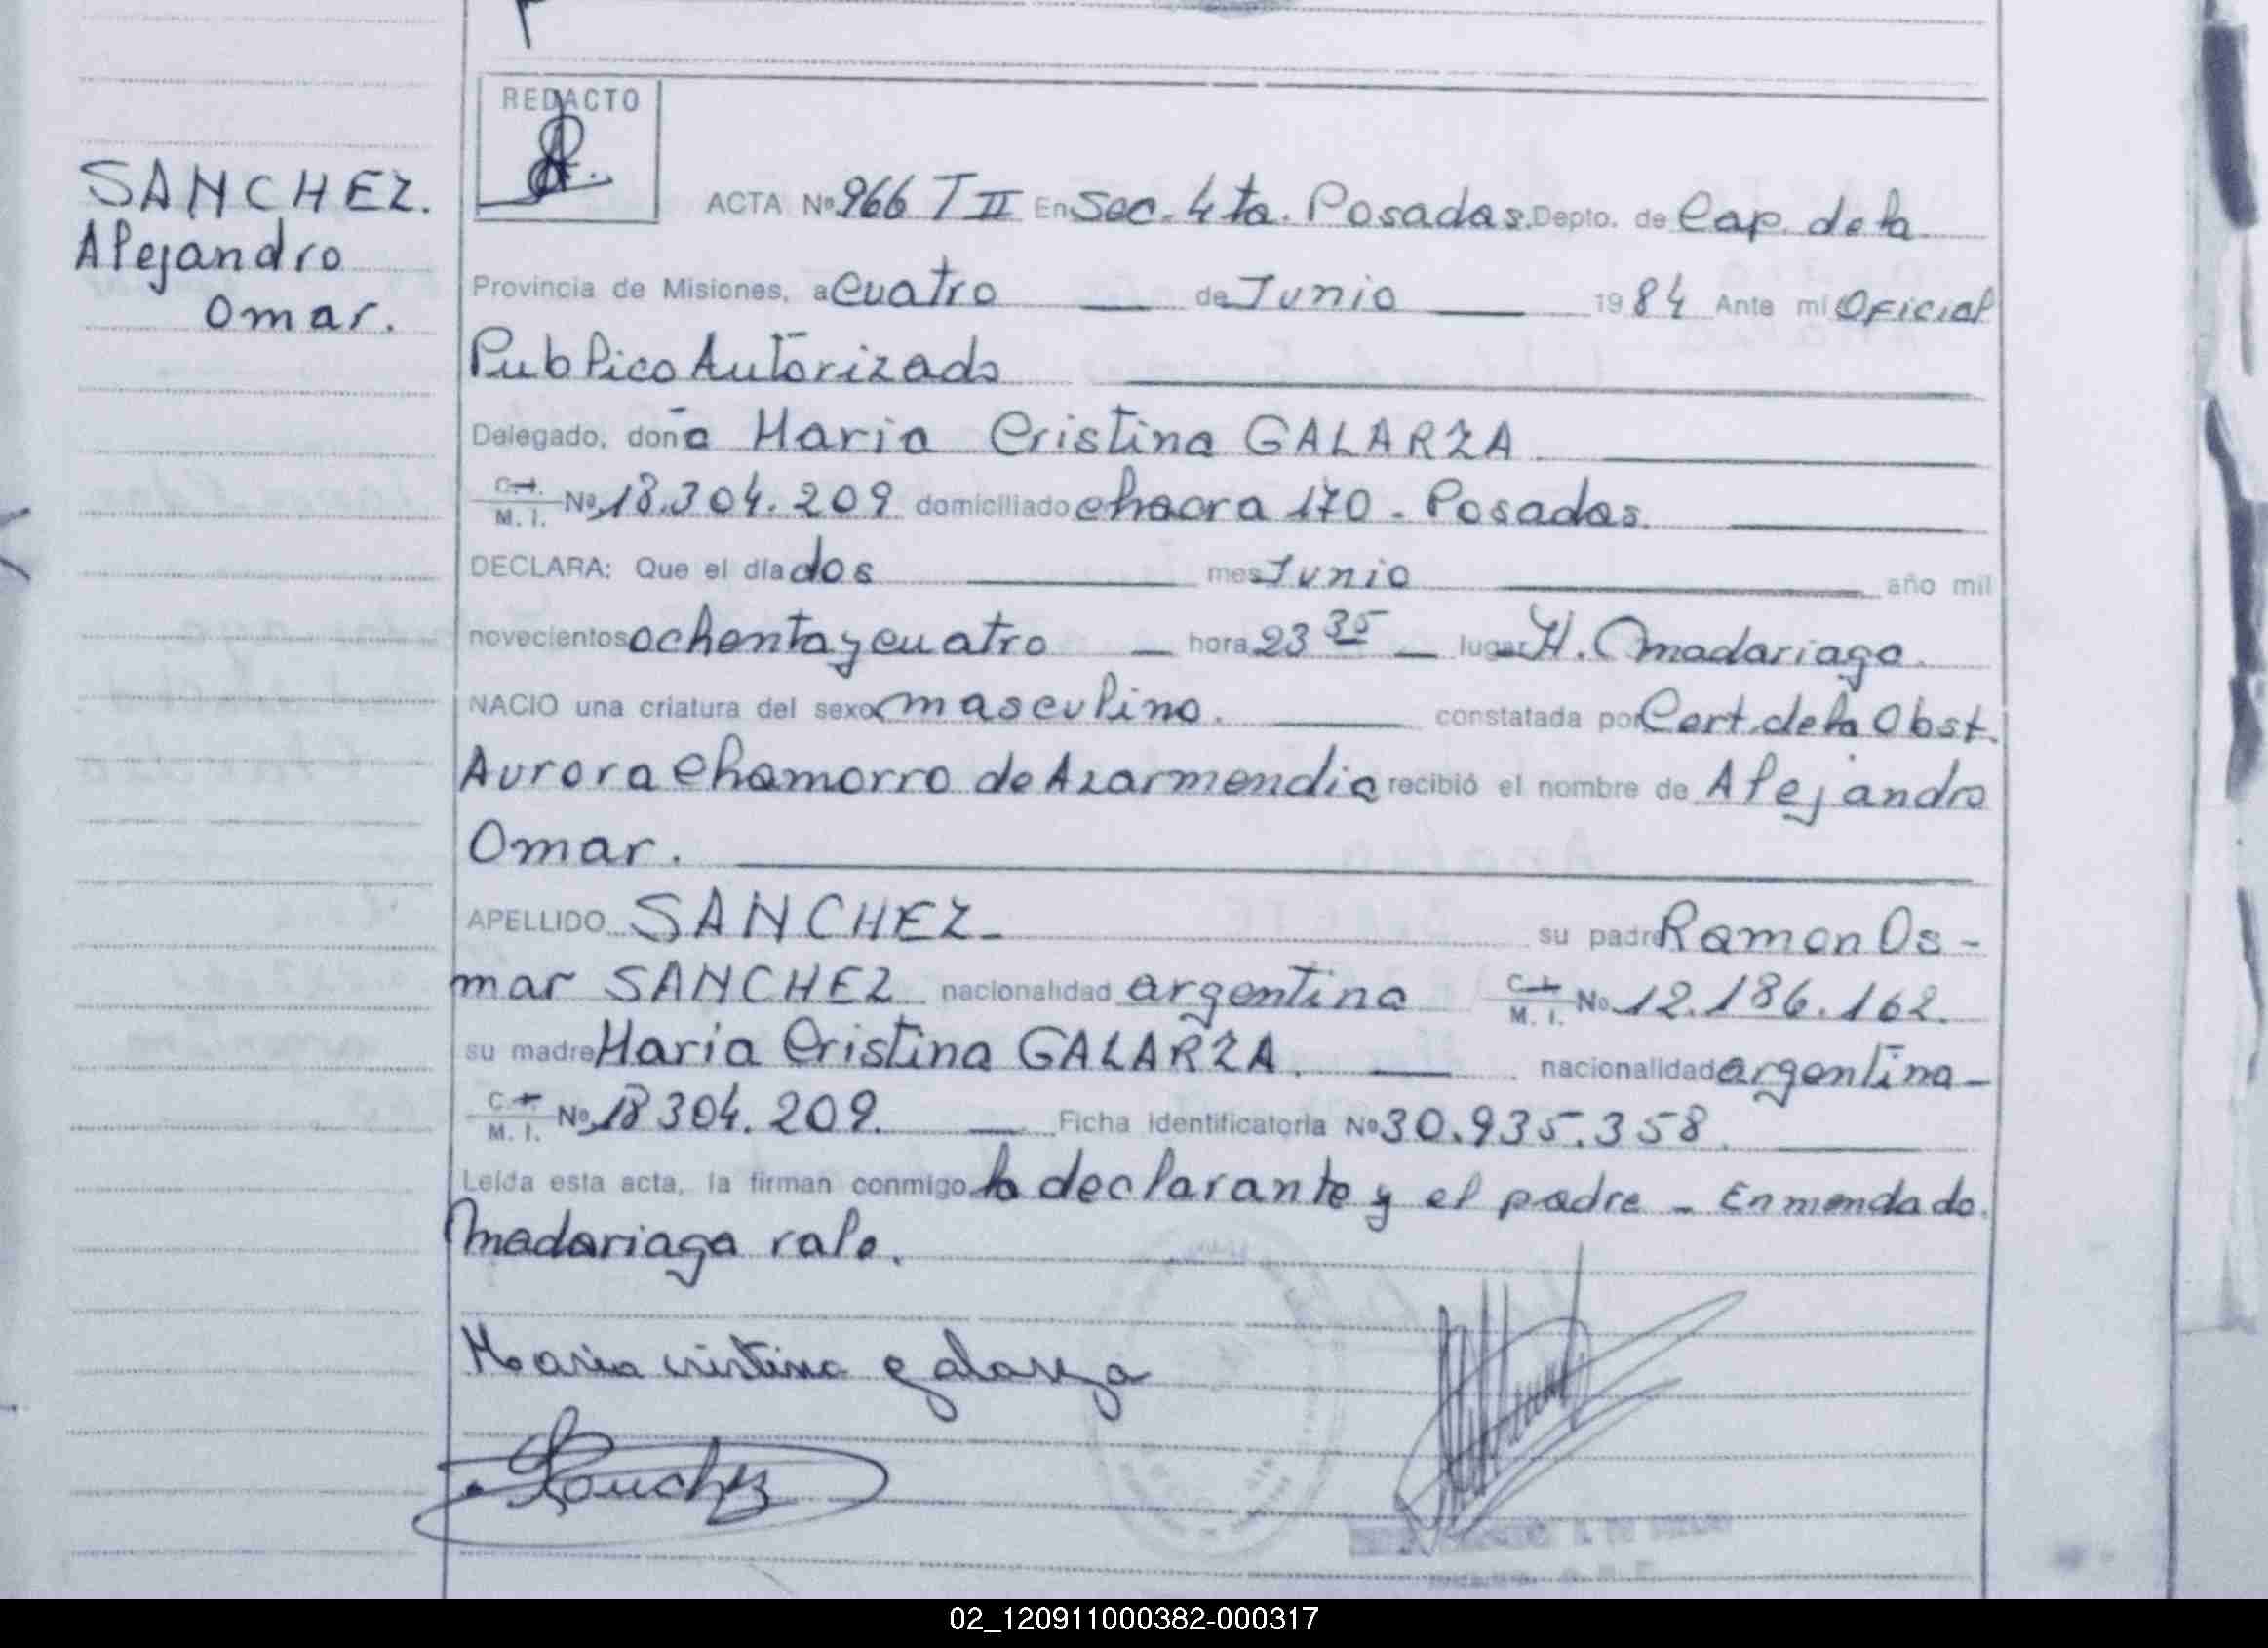 REDACTO
SANCHEZ.
Alejandro
Omar.
ACTA Nº 966 T II En Sec. 4ta. Posadas. Depto. de Cap. de la
Provincia de Misiones, a Cuatro de Junio 1984 Ante mí Oficial
Publico Autorizado
Delegado, doña Maria Cristina GALARZA
C.I. M. I. Nº 18.304.209 domiciliado chacra 170 - Posadas.
DECLARA: Que el día dos mes Junio año mil
novecientos ochenta y cuatro hora 23 35 lugar H. Madariaga.
NACIO una criatura del sexo masculino. constatada por Cert. de la Obst.
Aurora Chamorro de Azarmendia recibió el nombre de Alejandro
Omar.
APELLIDO SANCHEZ - su padre Ramon Os-
mar SANCHEZ nacionalidad argentina C.I. M. I. Nº 12.186.162.
su madre Maria Cristina GALARZA. nacionalidad argentina -
C.I. M. I. Nº 18 304.209. Ficha identificatoria Nº 30.935.358.
Leída esta acta, la firman conmigo la declarante y el padre - Enmendado.
Madariaga vale.
Maria cristina galarza
Sanchez
02_120911000382-000317